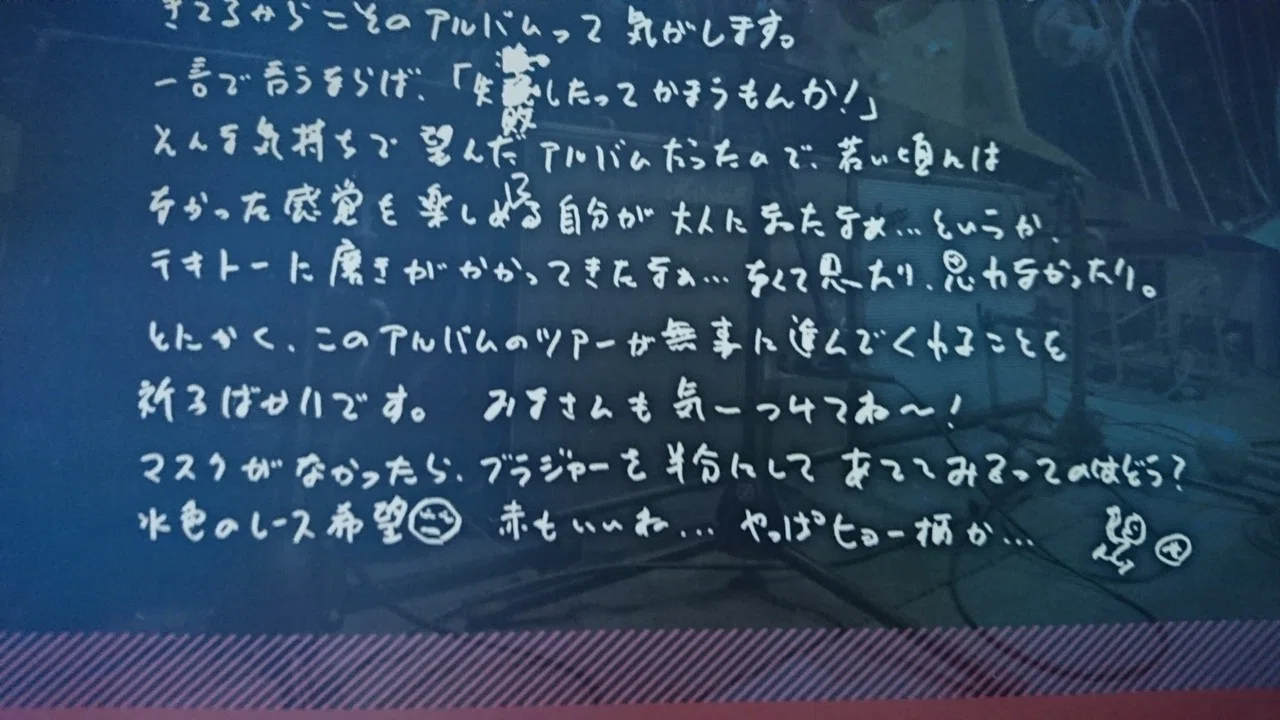 きてるからこそのアルバムって気がします。
一言で言うならば、「失敗したってかまうもんか!」
そんな気持ちで望んだアルバムだったので、若い頃んは
なかった感覚も楽しめる自分が大人になったなぁ…というか、
テキトーに磨きがかかってきたなぁ… なくて思たり、思わなかったり。
とにかく、このアルバムのツアーが無事に進んでくれることを
祈るばかりです。 みなさんも気ーつけてね〜!
マスクがなかったら、ブラジャーを半分にしてあててみるってのはどう?
水色のレース希望 赤もいいね… やっぱヒョー柄か…